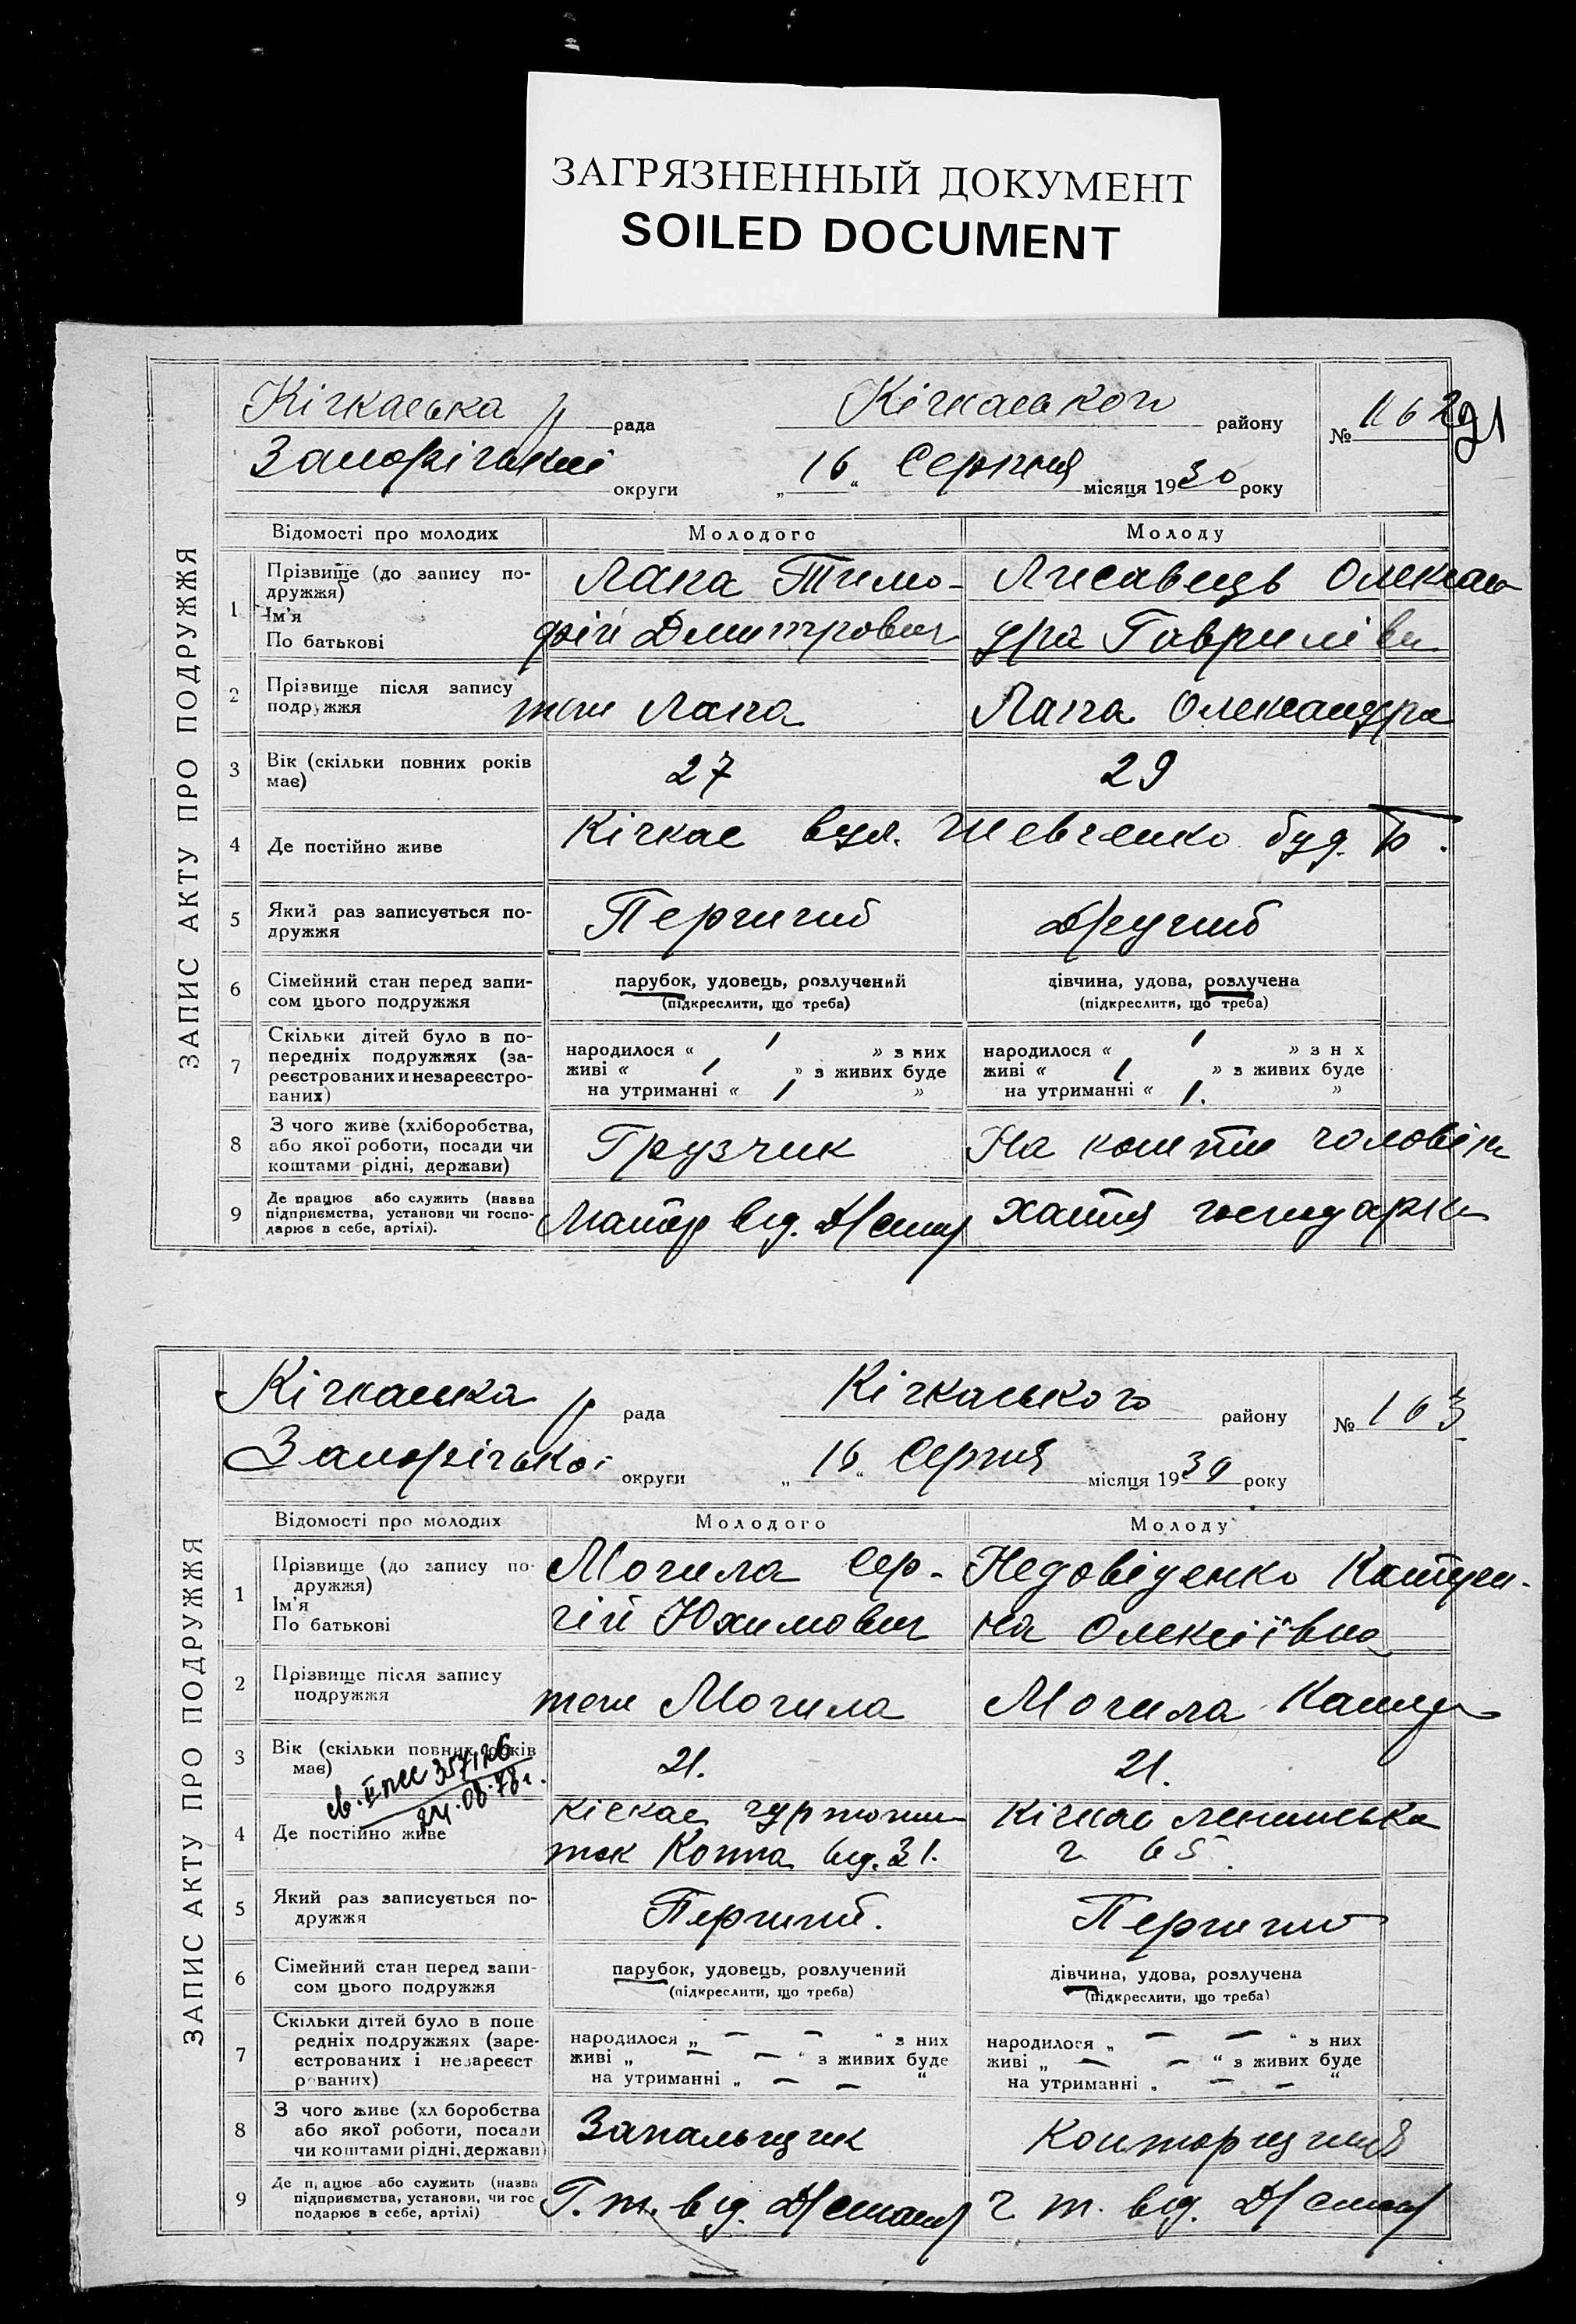 ЗАГРЯЗНЕННЫЙ ДОКУМЕНТ
SOILED DOCUMENT
ЗАПИС АКТУ ПРО ПОДРУЖЖЯ
Кічкаська р рада Кічкаського району № 162 91
Запорізької округи „ 16 “ Серпня місяця 1930 року
Відомості про молодих Молодого Молоду
1 Прізвище (до запису по-
дружжя)
Ім'я
По батькові
Лапа Тимо-
фій Дмитрович
Лисавець Олексан
дра Гаврилівн.
2 Прізвище після запису
подружжя
теж Лапа Лапа Олександра
3 Вік (скільки повних років
має)
27 29
4 Де постійно живе Кічкас вул. Шевченко буд.
5 Який раз записується по-
дружжя
Перший Другий
6 Сімейний стан перед запи-
сом цього подружжя
парубок, удовець, розлучений
(підкреслити, що треба)
дівчина, удова, розлучена
(підкреслити, що треба)
7 Скільки дітей було в по-
передніх подружжях (за-
реєстрованих и незареєстро-
ваних)
народилося « / » з них
живі « / » з живих буде
на утриманні « / »
народилося « / » з н х
живі « / » з живих буде
на утриманні « /. »
8 З чого живе (хліборобства,
або якої роботи, посади чи
коштами рідні, держави)
Грузчик На кошти чоловіка
9 Де працює або служить (назва
підприємства, установи чи госпо-
дарює в себе, артілі).
від. хатня господарка
ЗАПИС АКТУ ПРО ПОДРУЖЖЯ
Кічкаська р рада Кічкаського району № 163
Запорізької округи „ 16 “ Серпня місяця 1930 року
Відомості про молодих Молодого Молоду
1 Прізвище (до запису по-
дружжя)
Ім'я
По батькові
Могила Сер-
гій Юхимович
Недовіденко Катери-
на Олексіївна
2 Прізвище після запису
подружжя
теж Могила Могила Катер
3 Вік (скільки повних років
має)
21. 21.
св. II 357126
24.08.78г.
4 Де постійно живе
Кічкас гуртожи
ток від. 31.
Кічкас Ленінська
ч. 65.
5 Який раз записується по-
дружжя
Перший. Перший
6 Сімейний стан перед запи-
сом цього подружжя
парубок, удовець, розлучений
(підкреслити, що треба)
дівчина, удова, розлучена
(підкреслити, що треба)
7 Скільки дітей було в попе
редніх подружжях (заре-
єстрованих і незареєст
рованих)
народилося „ — — “ з них
живі „ — — “ з живих буде
на утриманні „ — — “
народилося „ — — “ з них
живі „ — — “ з живих буде
на утриманні „ — — “
8 З чого живе (хл боробства
або якої роботи, посади
чи коштами рідні, держави)
Запальщик Конторщиця
9 Де працює або служить (назва
підприємства, установи, чи гос
подарює в себе, артілі)
Г. т. від. г. т. від.